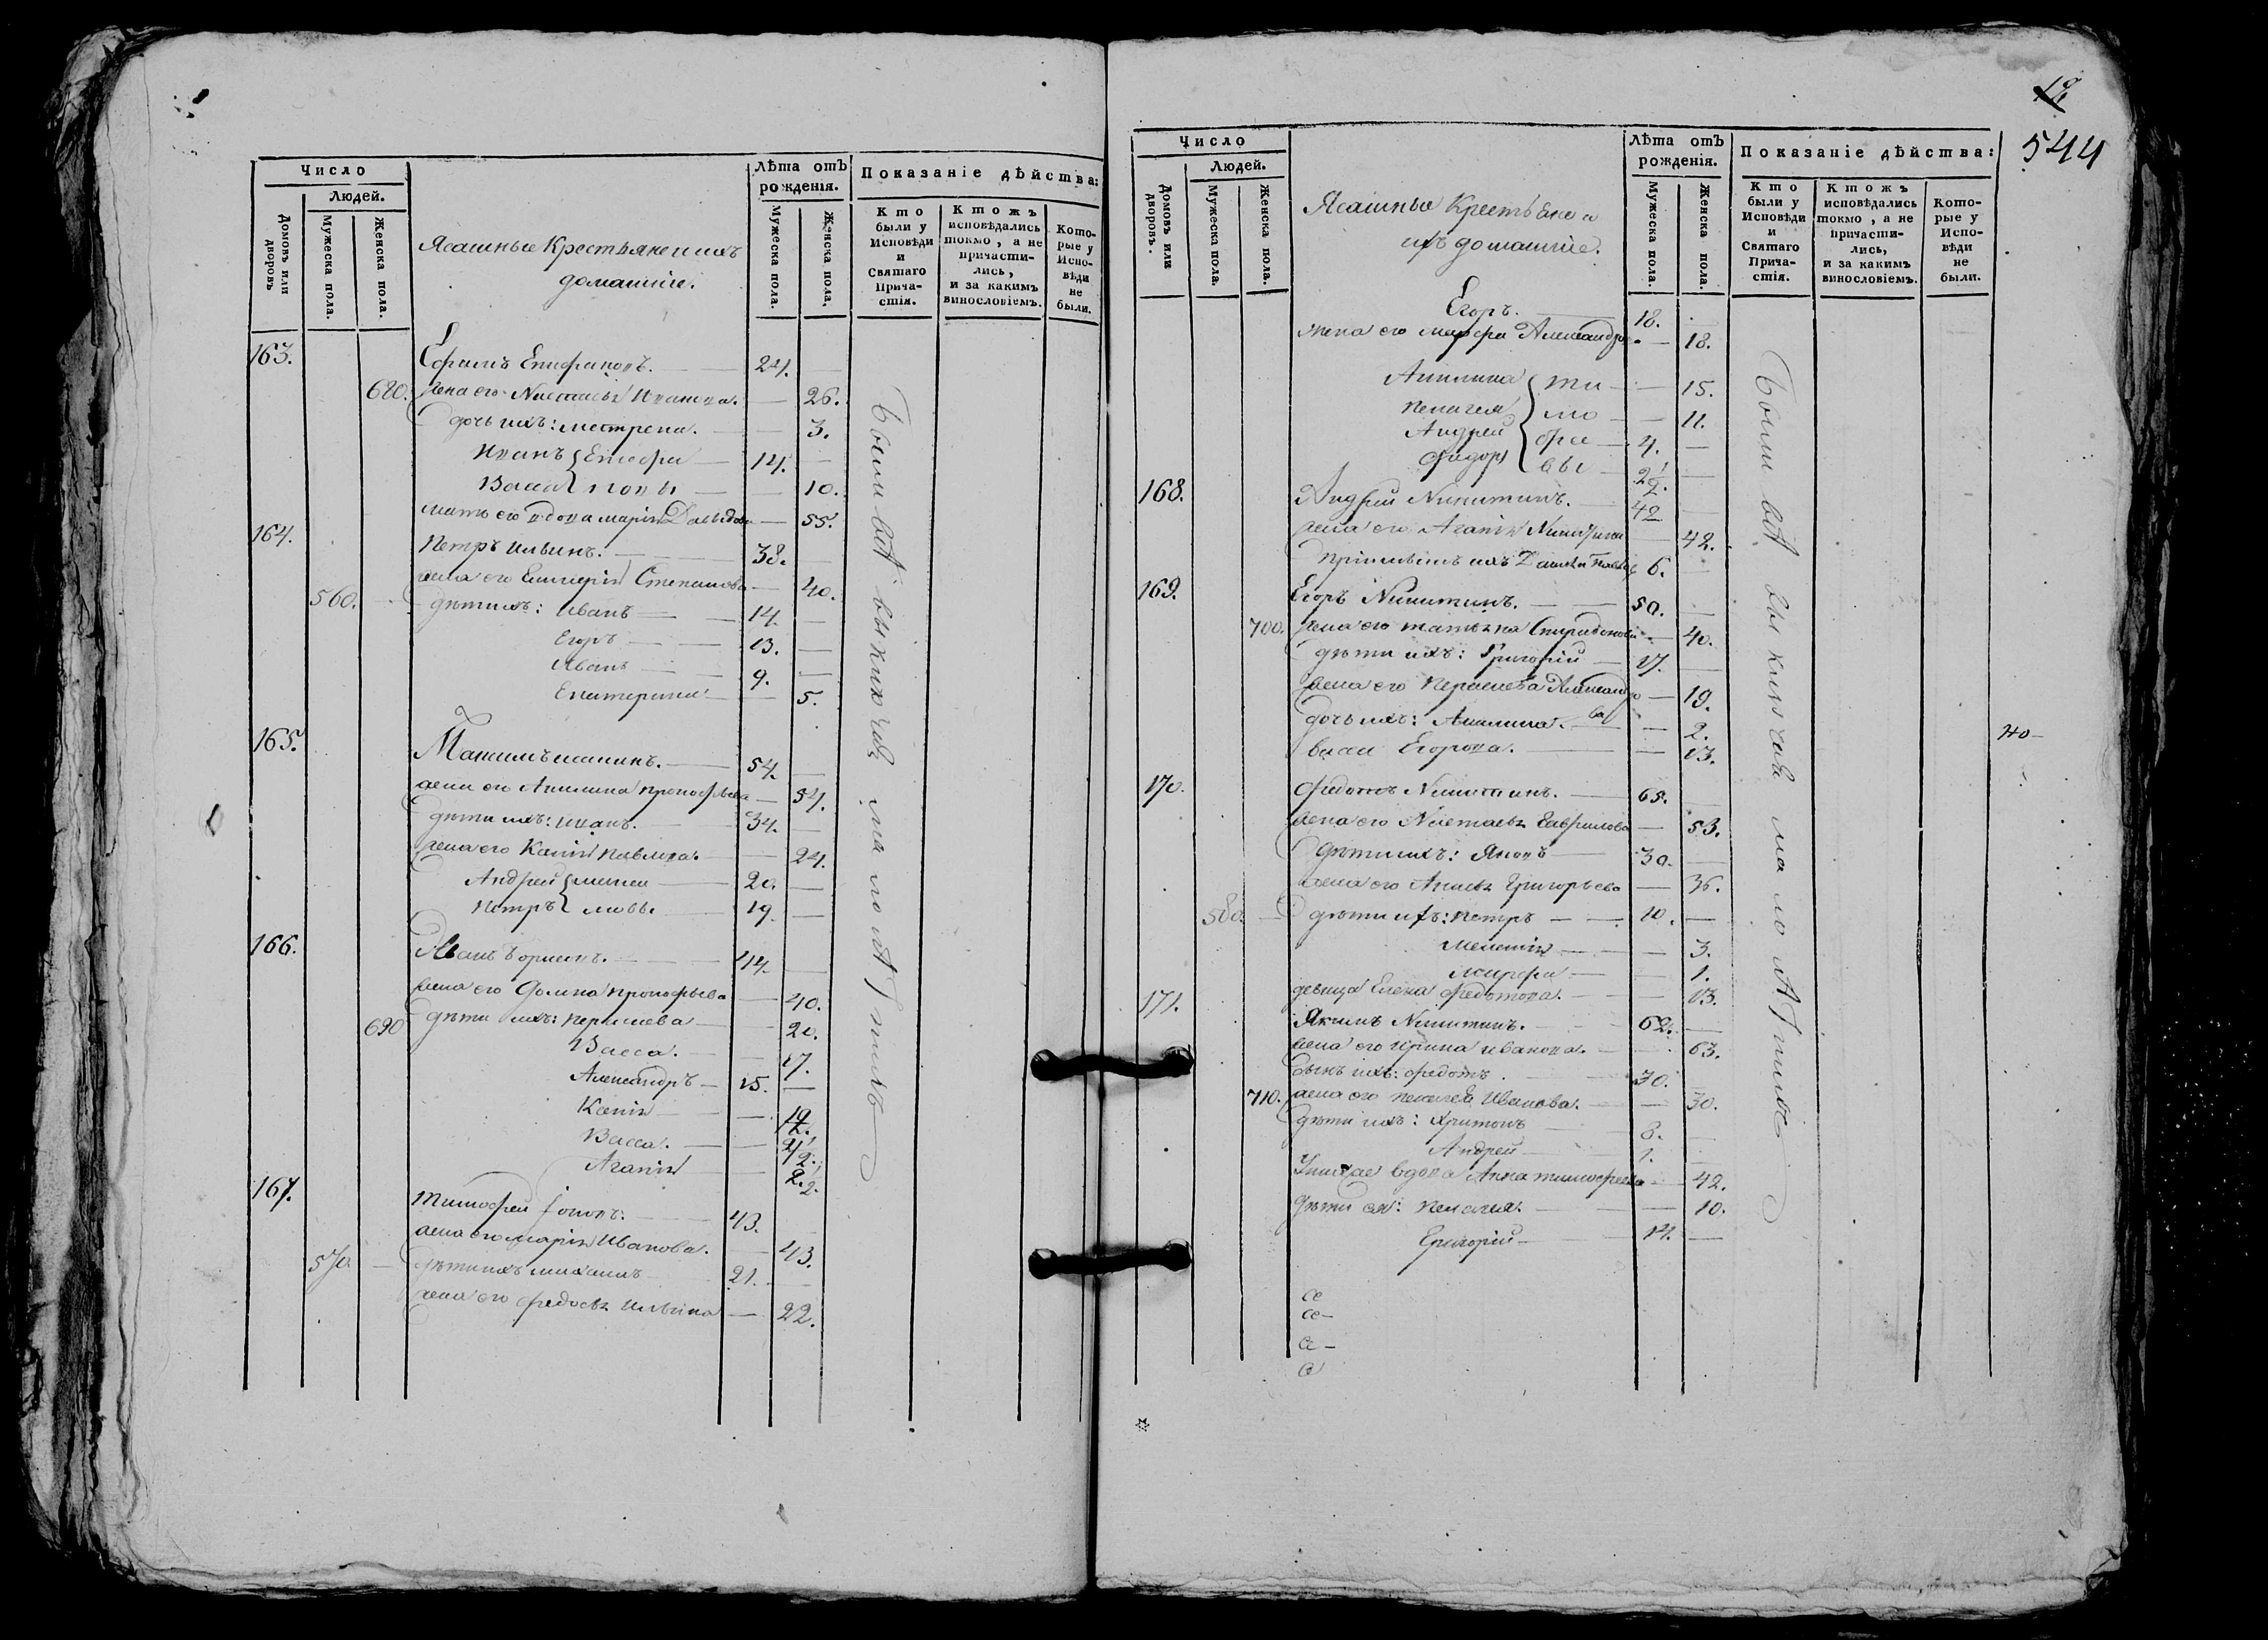 Число
Людей.
Домовъ или дворовъ
Мужеска пола.
Женска пола.
Ясашные Крестьяне и ихъ
домашніе.
Лѣта отъ
рожденія.
Мужеска пола.
Женска пола.
Показаніе дѣйства:
Кто были у Исповѣди и Святаго Прича-стія.
Ктожъ исповѣдались токмо, а не причасти-лись, и за какимъ винословіемъ.
Кото-рые у Испо-вѣди не были.
163.
Ефимъ Епифановъ. 24.
680. жена его Настасья Иванова. 26.
дочь ихъ: Матрена. 3.
Иванъ { Епифа 14.
Васса { новы 10.
мать его вдова Марія Давыдова 55.
164.
Петръ Ильинъ. 38.
жена его Степанова 40.
560. дѣти ихъ: Иванъ 14.
Егоръ 13.
Иванъ 9.
Екатерина 5.
165.
Максимъ 54.
жена его Акилина Прокофьева 54.
дѣти ихъ: Иванъ. 34.
жена его Ксенія Павлова. 24.
Андрей { Макси 20.
Петръ { мовы 19.
166.
Иванъ Борисовъ. 44.
жена его Домна Прокофьева 40.
690 дѣти ихъ: Парасковья 20.
Васса. 17.
Александръ 15.
Ксенія 12.
Васса.
Агапія
167.
Тимофей 43.
жена его Марія Иванова. 43.
570. дѣти ихъ Михаилъ 21.
жена его Федосья Ильина 22.
Были всѣ
544
Число
Людей.
Домовъ или дворовъ.
Мужеска пола.
Женска пола.
Ясашные Крестьяне и
ихъ домашніе.
Лѣта отъ
рожденія.
Мужеска пола.
Женска пола.
Показаніе дѣйства:
Кто были у Исповѣди и Святаго Прича-стія.
Ктожъ исповѣдались токмо, а не причасти-лись, и за какимъ винословіемъ.
Кото-рые у Испо-вѣди не были.
Егоръ. 18.
жена его Марфа Александро 18.
Акилина { ти 15.
Пелагея { мо 11.
Андрей { фее 4.
Федоръ { вы 2 1/2.
168.
Андрей Никитинъ. 42
жена его Агапія 42.
6.
169.
Егоръ Никитинъ. 50.
700. жена его Татьяна Спиридонова 40.
дѣти ихъ: Григорій 17.
жена его Александро 19.
ва
дочь ихъ: Акилина. 2.
Васса Егорова. 13.
170.
Федотъ Никитинъ. 65.
жена его Настасья Гаврилова 53.
дѣти ихъ: Яковъ 30.
жена его Григорьева 36.
580. дѣти ихъ: Петръ 10.
3.
Марфа 1.
девица Елена Федотова. 13.
171.
Якимъ Никитинъ. 62.
жена его Ирина Иванова. 63.
сынъ ихъ: Федотъ. 30.
710. жена его Пелагея Иванова. 30.
дѣти ихъ: Харитонъ 3.
Андрей 1.
вдова Анна Тимофеева 42.
дѣти ея: Пелагея. 10.
Григорій 14.
Были всѣ